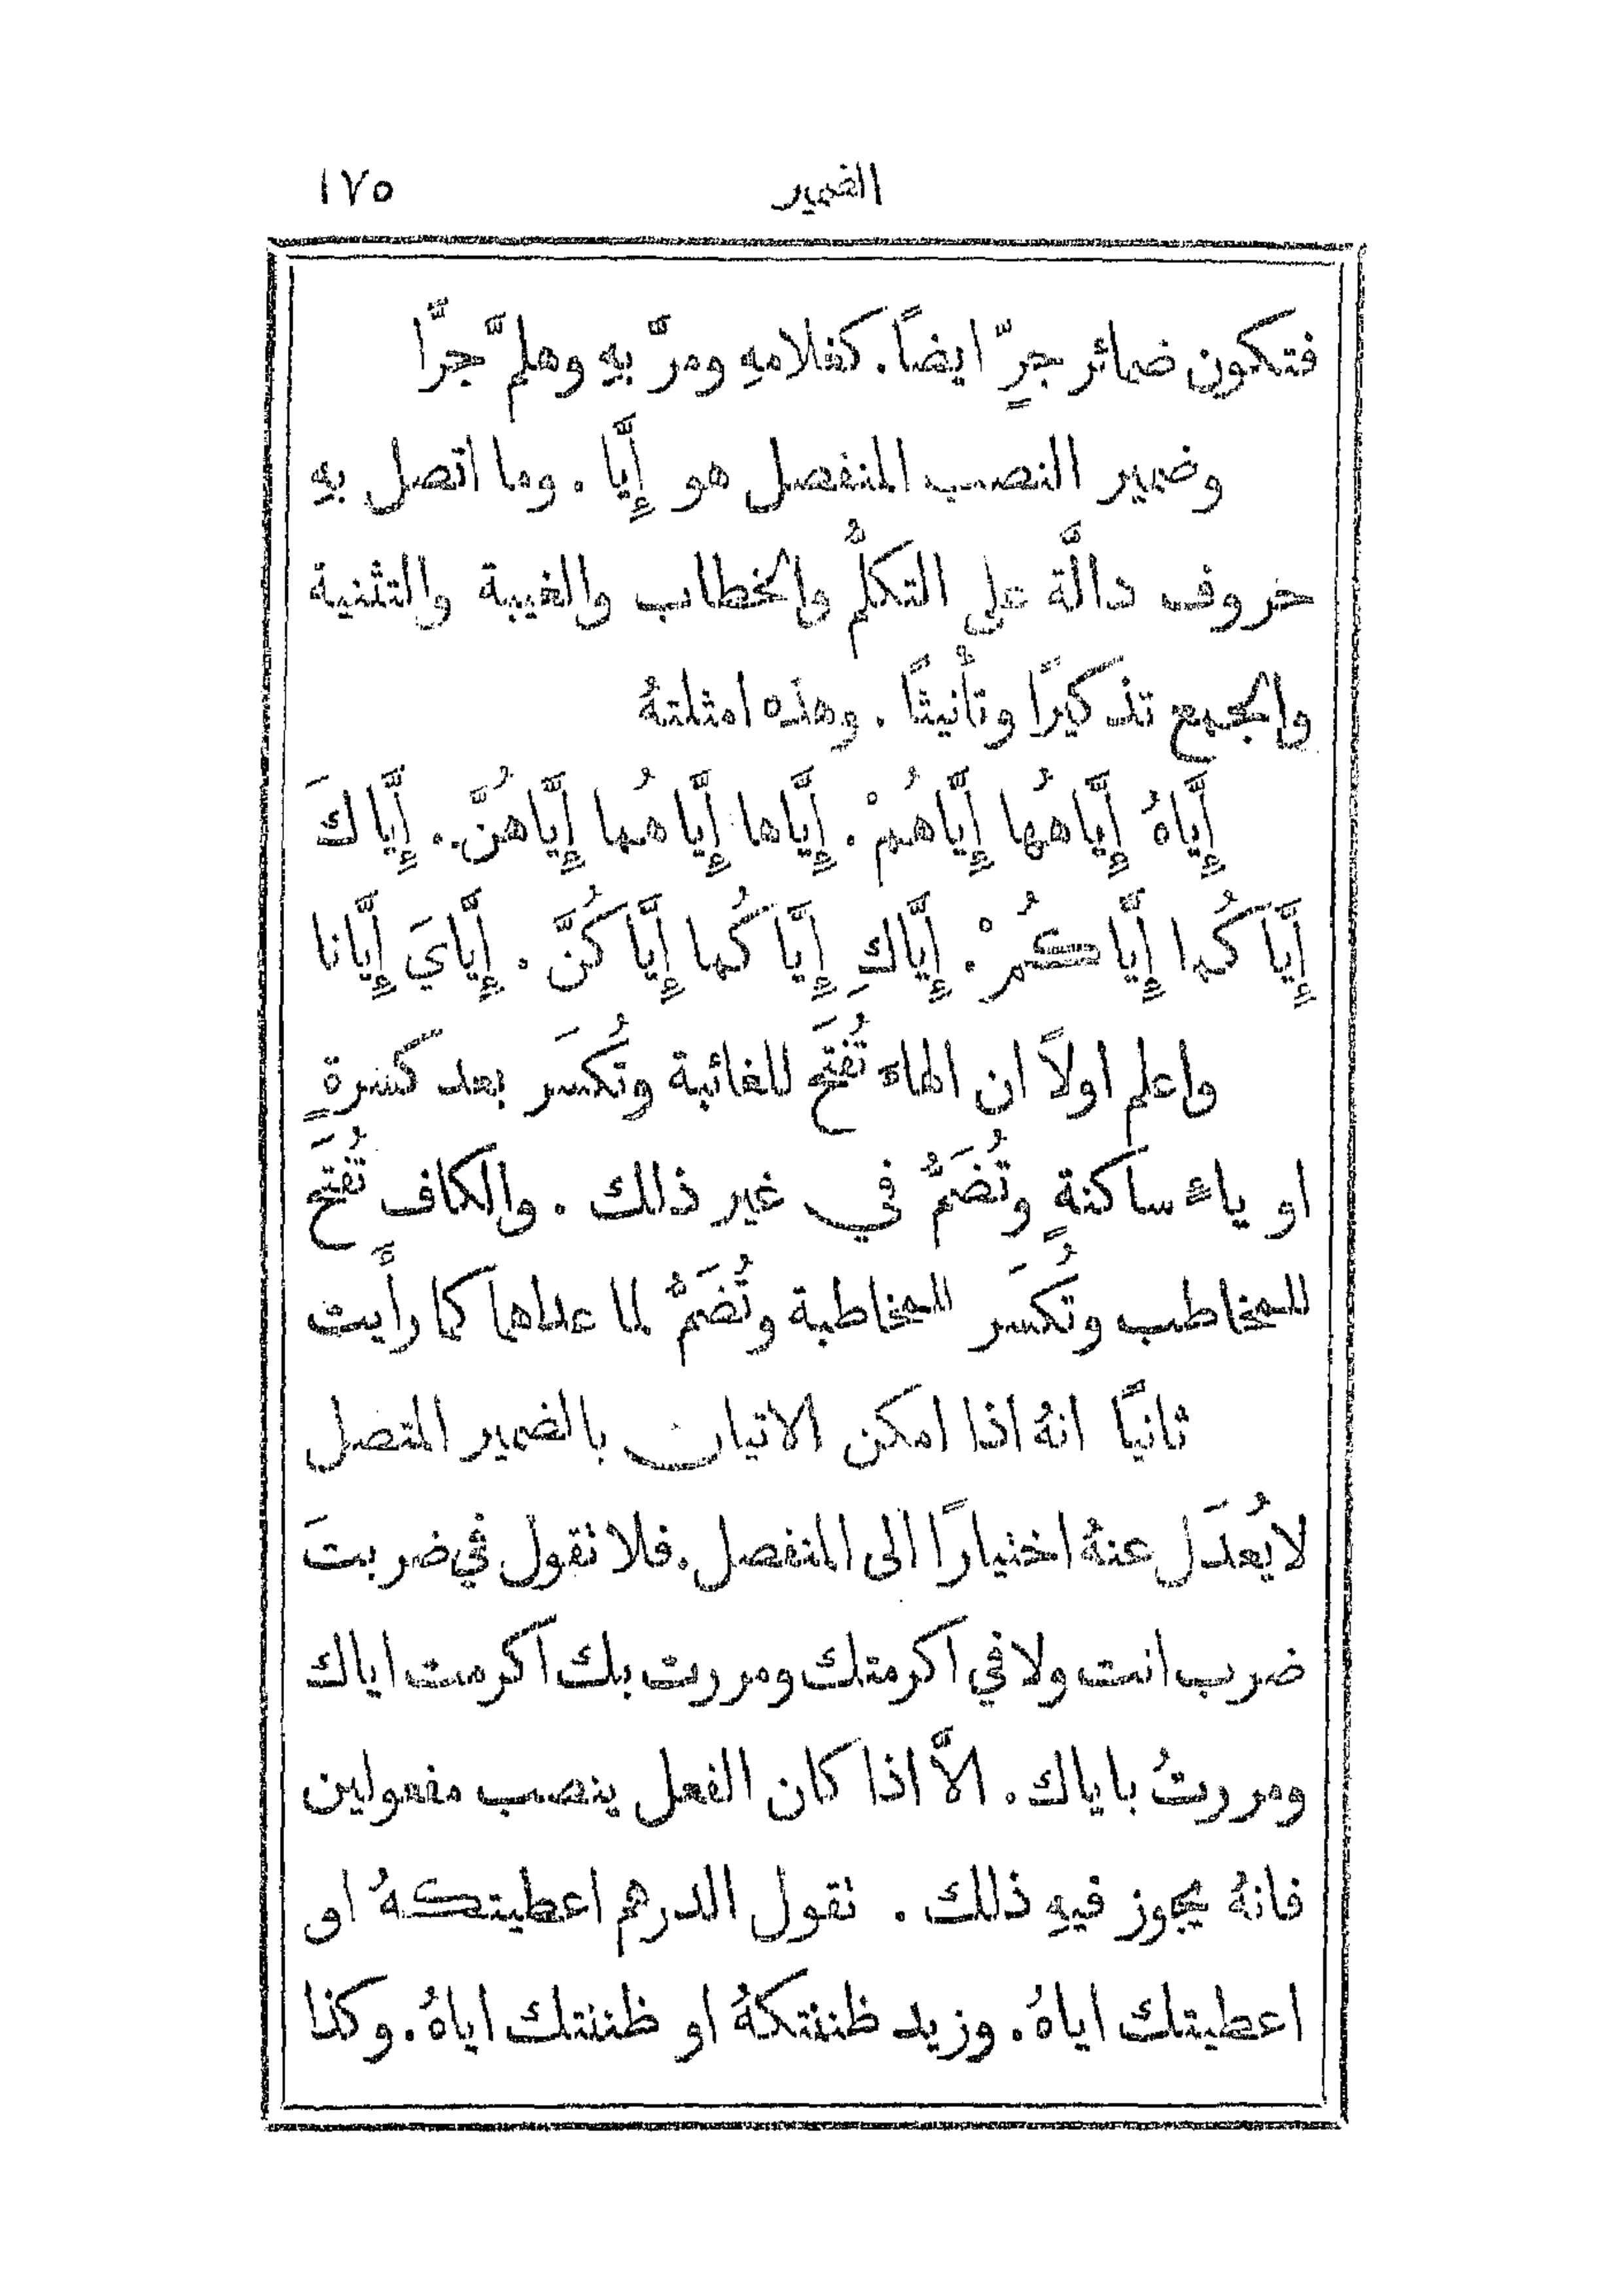 الضمير ١٧٥
فتكون ضمائر جرٍّ ايضاً. كغلامهِ ومرَّ بهِ وهلمَّ جرًّا
وضمير النصب المنفصل هو إِيَّا. وما اتصل بهِ
حروف دالَّة على التكلُّم والخطاب والغيبة والتثنية
والجمع تذكيرًا وتأنيثًا. وهذه امثلتهُ
إِيَّاهُ إِيَّاهُما إِيَّاهُمْ. إِيَّاها إِيَّاهُما إِيَّاهُنَّ. إِيَّاكَ
إِيَّاكُما إِيَّاكُمْ. إِيَّاكِ إِيَّاكُما إِيَّاكُنَّ. إِيَّايَ إِيَّانا
واعلم اولاً ان الهاء تُفتَح للغائبة وتُكسَر بعد كسرةٍ
او ياء ساكنةٍ وتُضَمُّ في غير ذلك. والكاف تُفتَح
للمخاطب وتُكسَر للمخاطبة وتُضَمُّ لما عداهما كما رأَيت
ثانيًا انهُ اذا امكن الاتيان بالضمير المتصل
لا يُعدَل عنهُ اختيارًا الى المنفصل. فلا تقول في ضربتَ
ضرب انت ولا في اكرمتك ومررت بك اكرمت اياك
ومررتُ باياك. الاَّ اذا كان الفعل ينصب مفعولين
فانهُ يجوز فيهِ ذلك. تقول الدرهم اعطيتكهُ او
اعطيتك اياهُ. وزيد ظننتكهُ او ظننتك اياهُ. وكذا